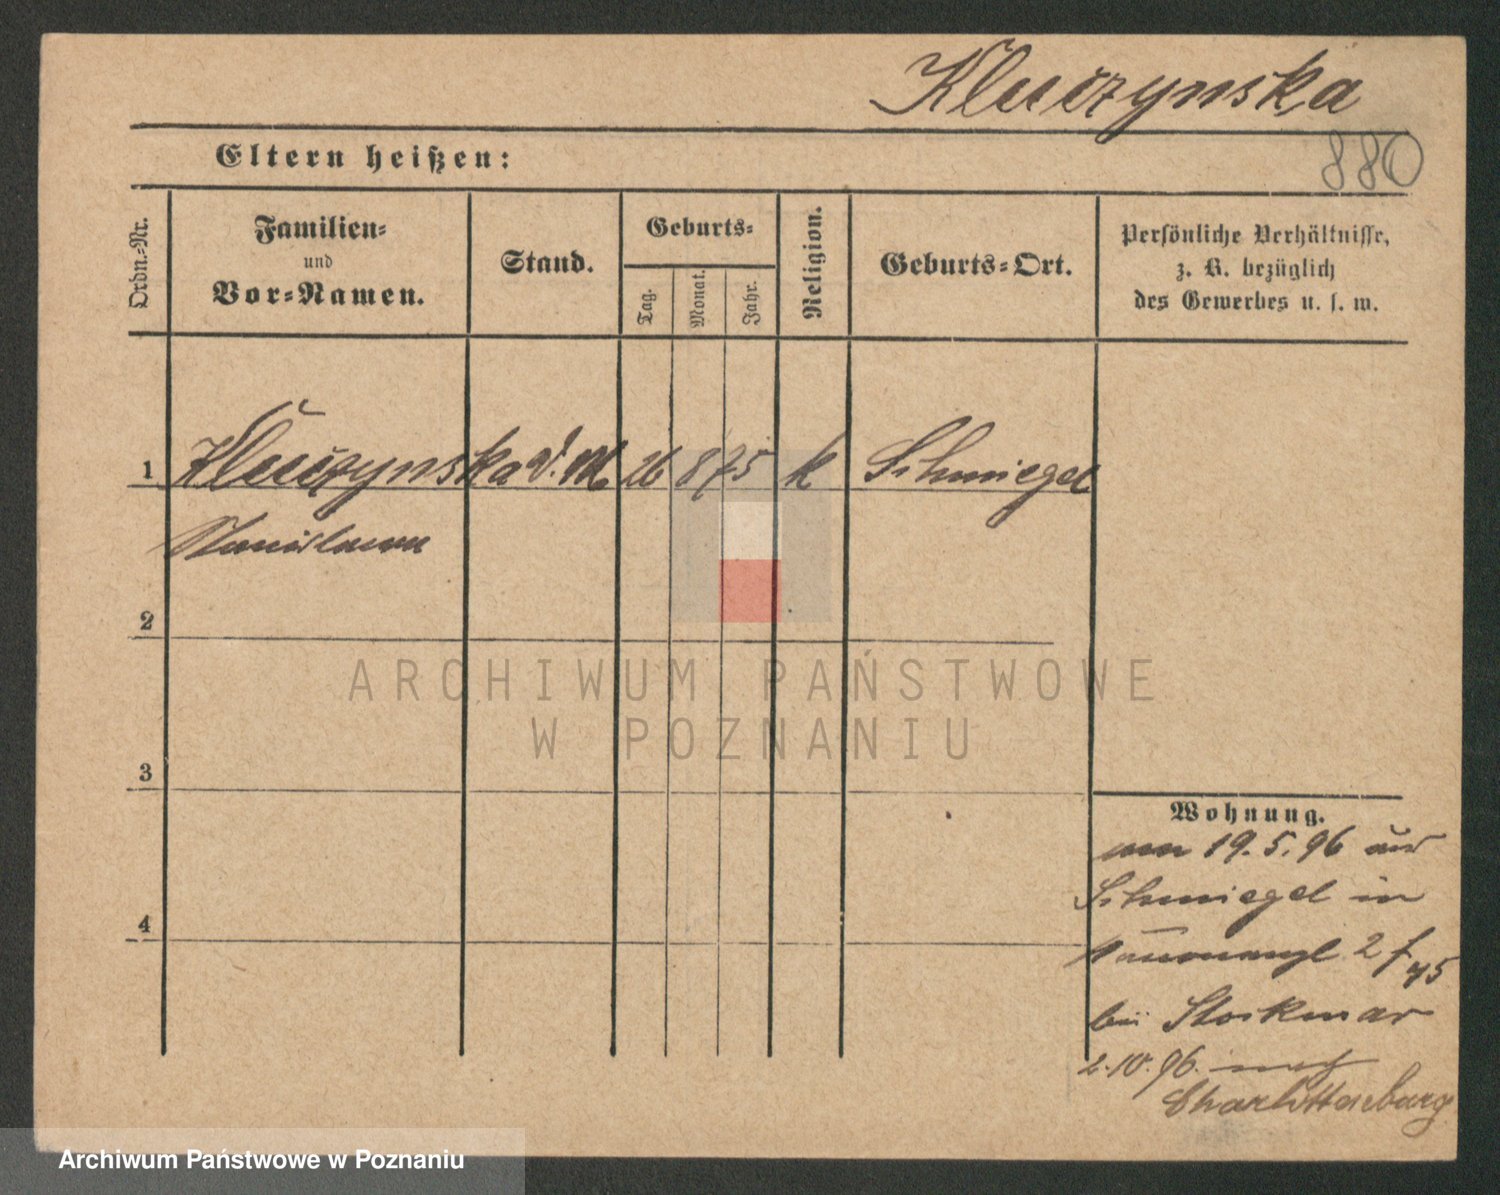 Kluczynska
880
Eltern heißen:
Ordn.-Nr.
Familien-
und
Vor-Namen.
Stand.
Geburts-
Tag.
Monat.
Jahr.
Religion.
Geburts-Ort.
Persönliche Verhältnisse,
z. B. bezüglich
des Gewerbes u. s. w.
1 Kluczynska D. M. 26 8 75 k Schmiegel
Stanislawa
2
3
4
ARCHIWUM PAŃSTWOWE
W POZNANIU
Wohnung.
19.5.96 aus
Schmiegel in
2
bei Stockmar
2.10.96. nach
Charlottenburg
Archiwum Państwowe w Poznaniu